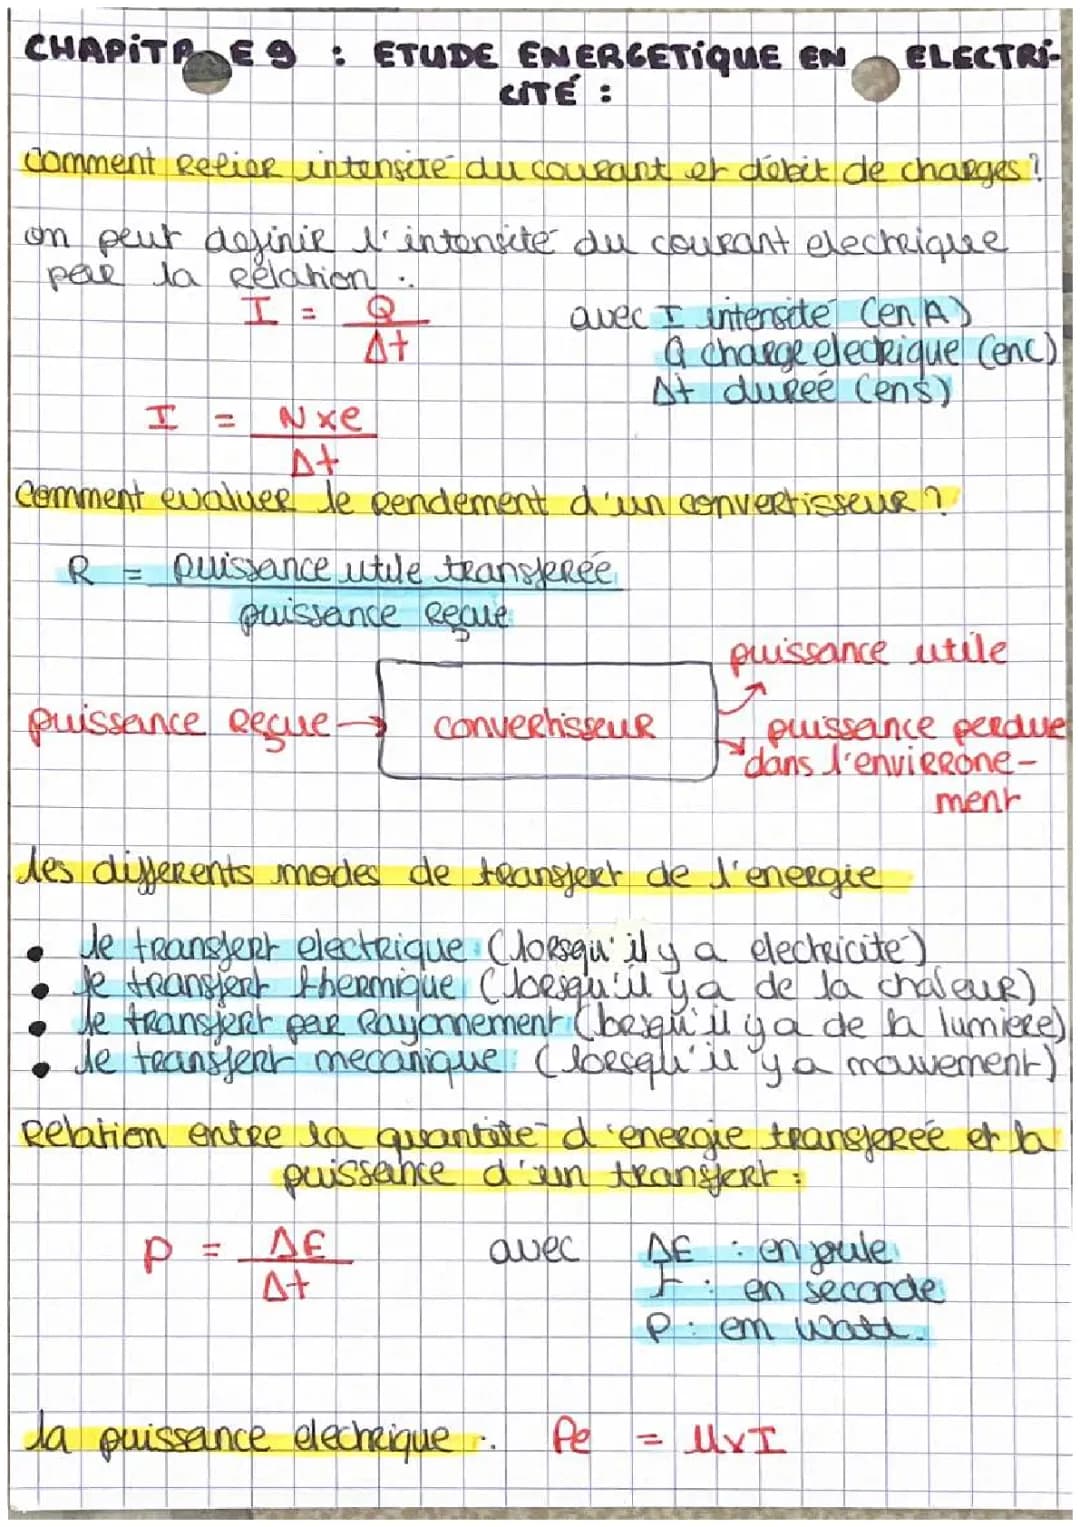 CHAPITRE 9 : ETUDE ENERGETIQUE EN ELECTRI-
CITÉ :
comment relier intensité du courant et débit de charges ?
on peut definir l'intensité du courant electrique
par la relation :
I = Q / Δt
avec I intensité (en A)
Q charge electrique (en C)
Δt durée (en s)
I = N x e / Δt
comment evaluer le rendement d'un convertisseur ?
R = puissance utile transferée / puissance reçue
puissance utile
puissance reçue → convertisseur
puissance perdue
dans l'environe-
ment
les differents modes de transfert de l'energie
• le transfert electrique (lorsqu'il y a electricité)
• le transfert thermique (lorsqu'il y a de la chaleur)
• le transfert par rayonnement (lorsqu'il y a de la lumiere)
• le transfert mecanique : (lorsqu'il y a mouvement)
Relation entre la quantité d'energie transferée et la
puissance d'un transfert :
P = ΔE / Δt
avec ΔE : en joule
t : en seconde
P : en watt.
la puissance electrique : Pe = U x I